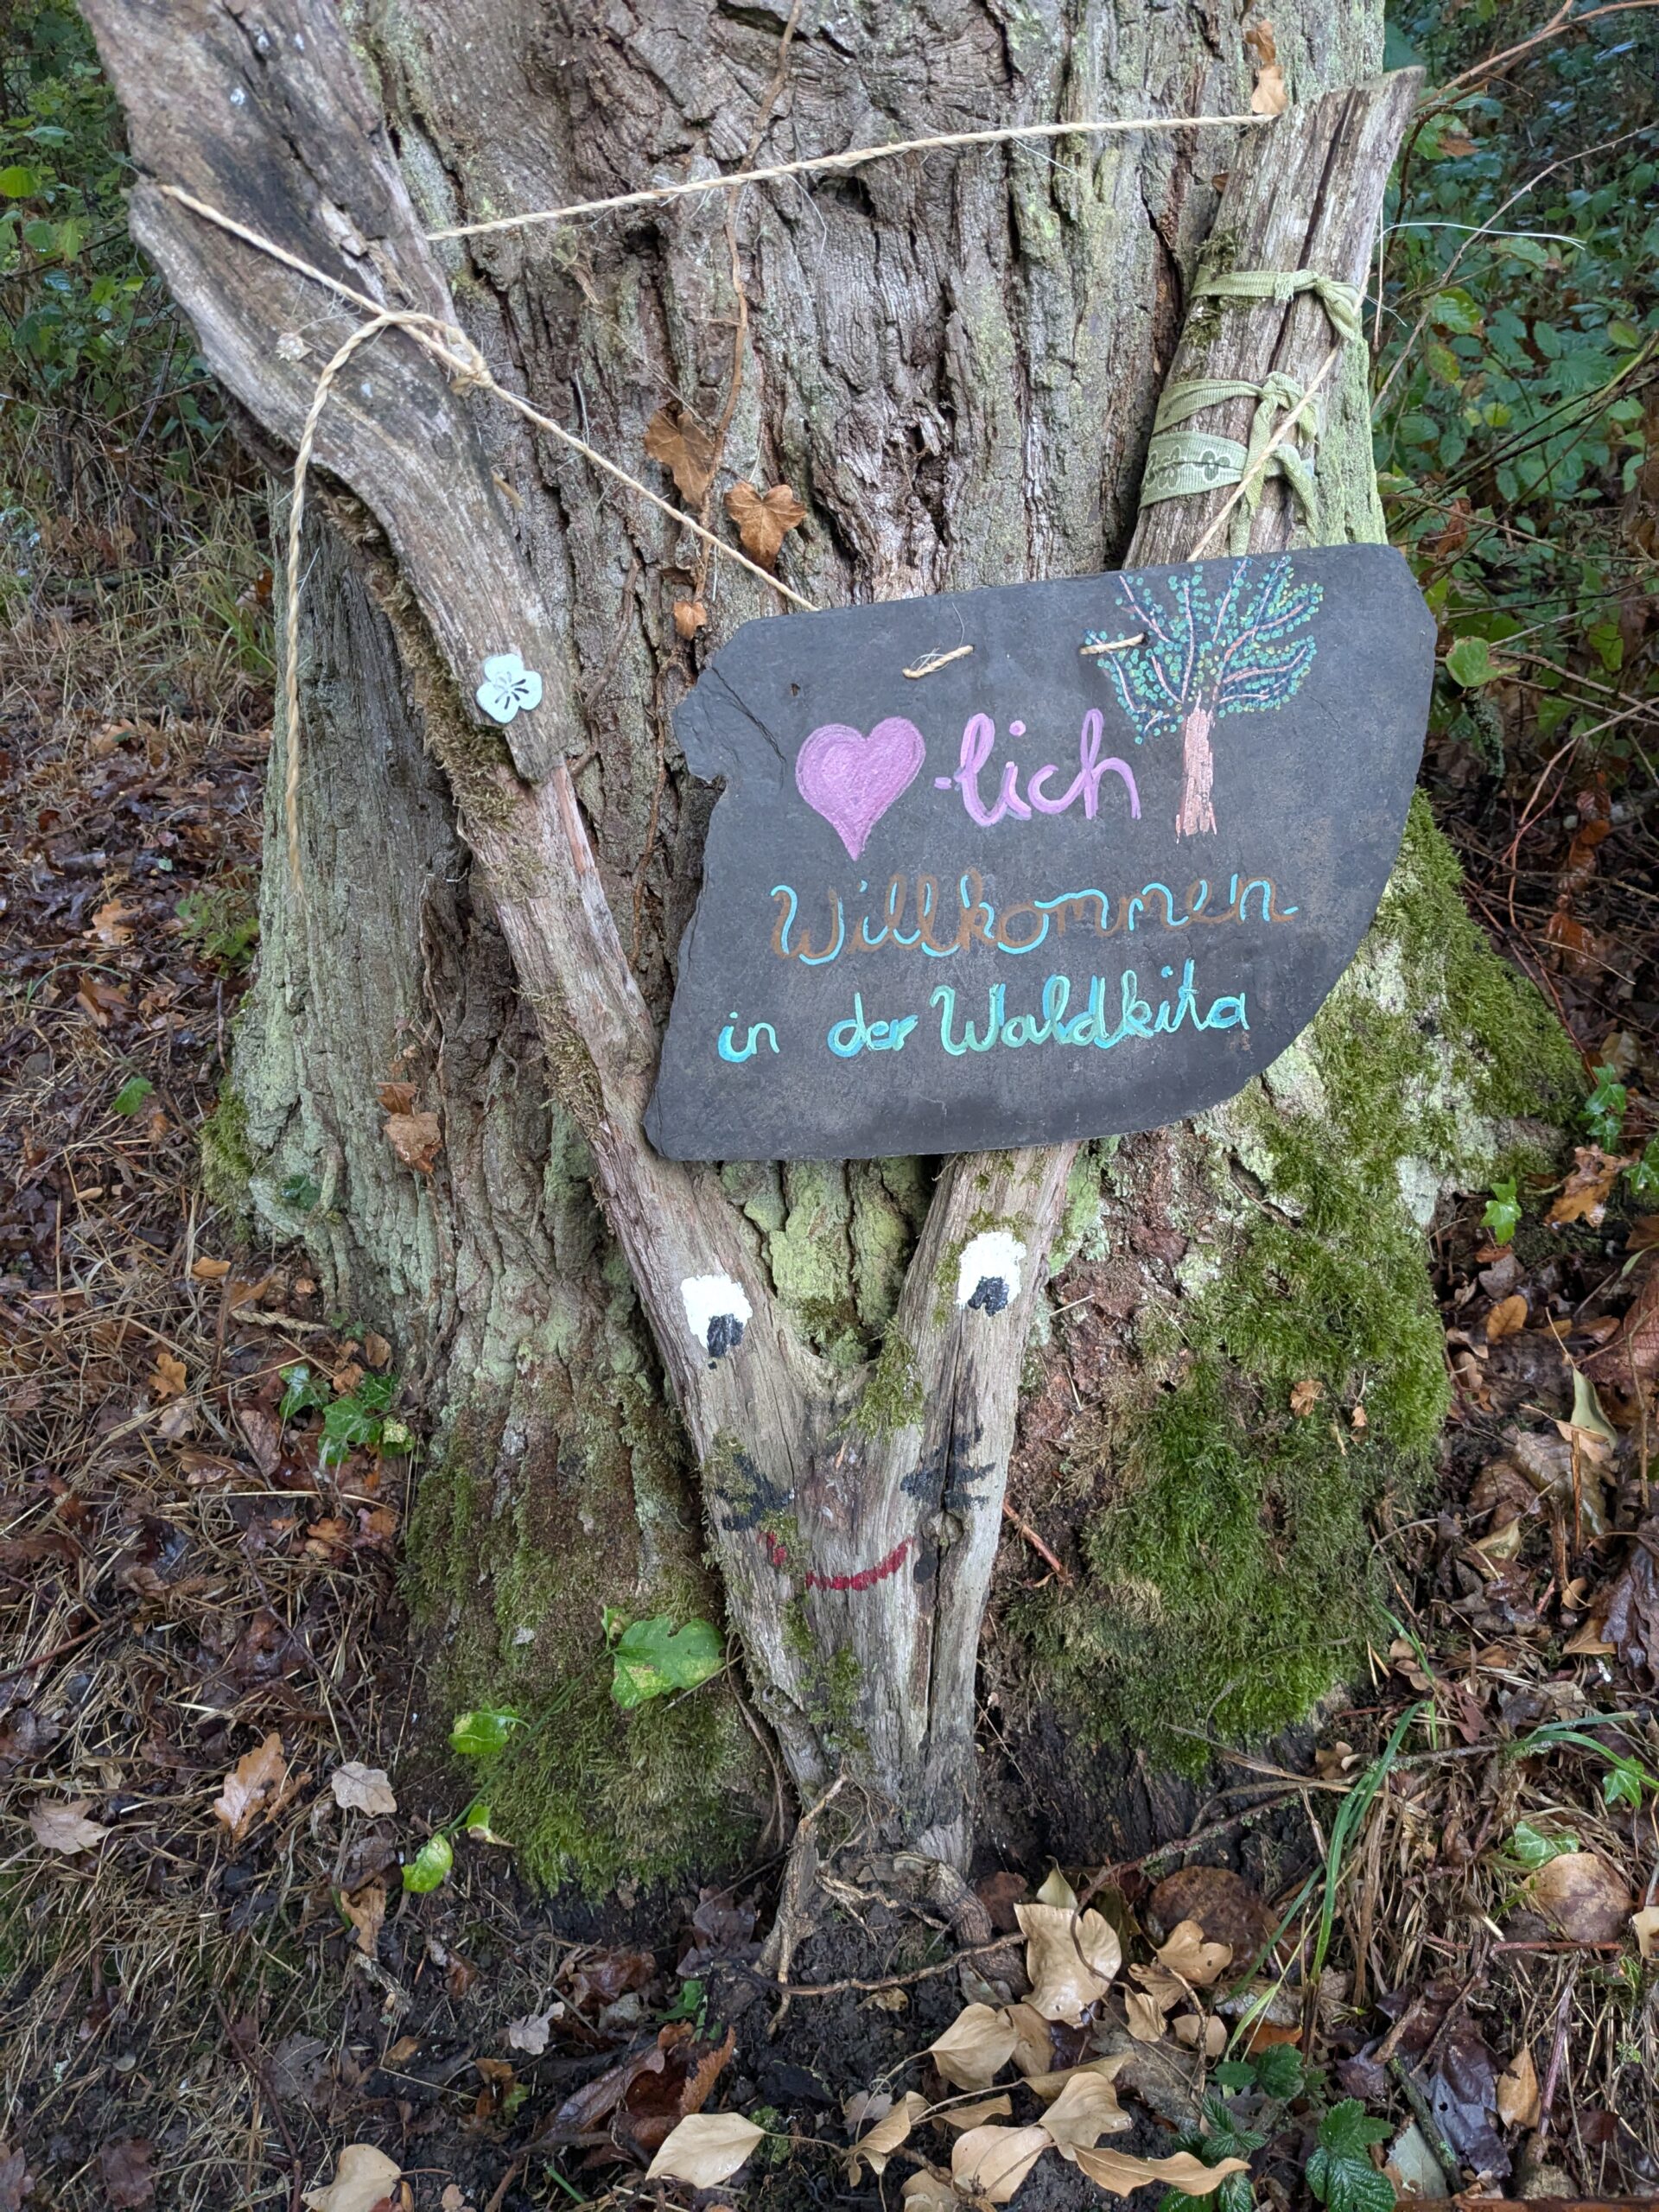 ♥-lich
Willkommen
in der Waldkita